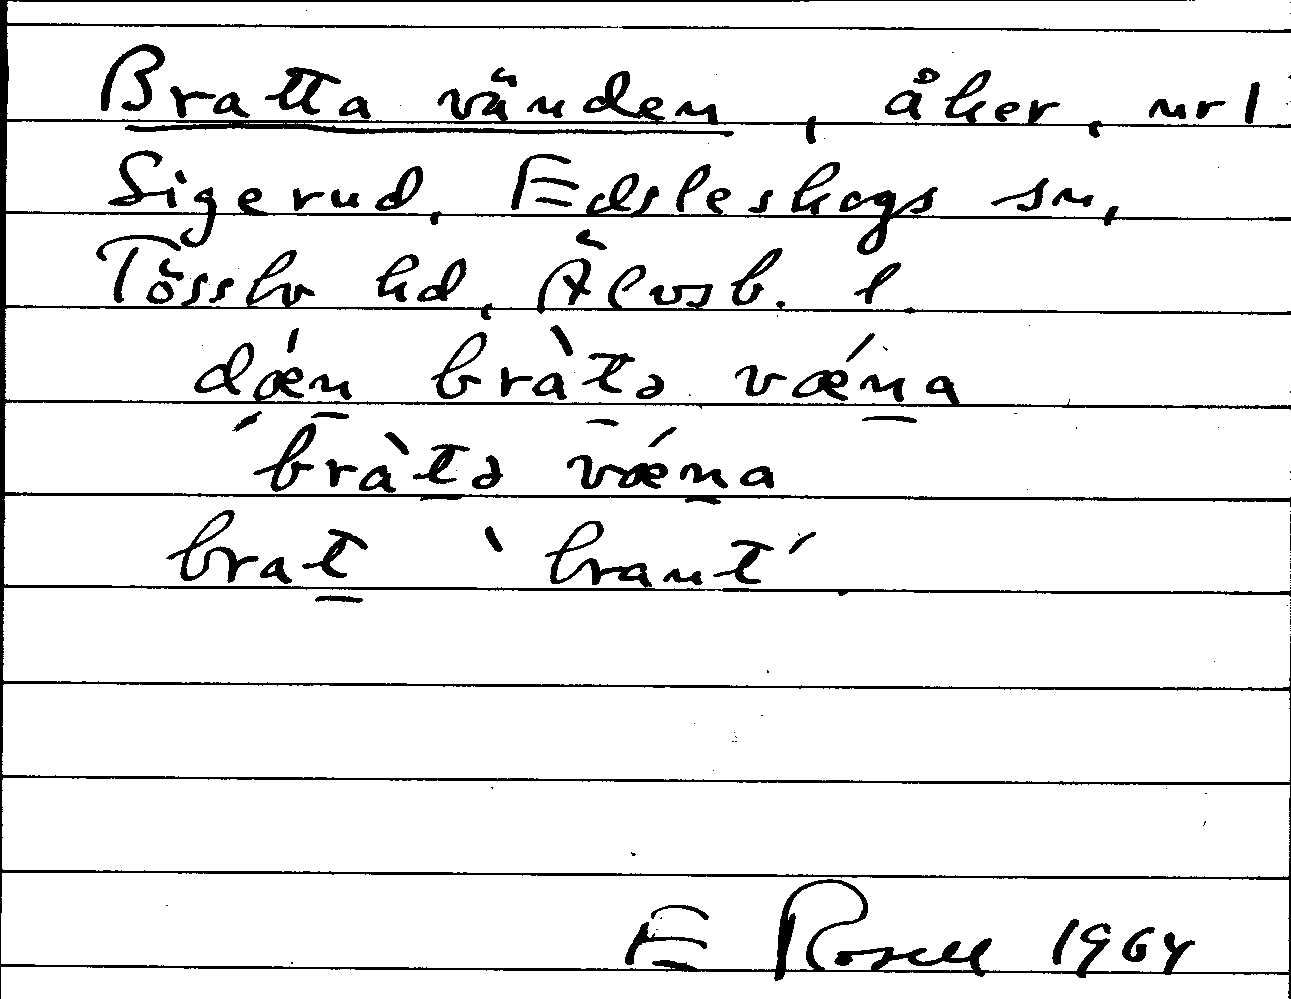 Bratta vänden, åker, nr 1
Sigerud, Edsleskogs sn,
Tössbo hd, Älvsb. l.
dǽn bràtə vǽna
bràtə vǽna
brat ‵brant′
E Rosell 1964